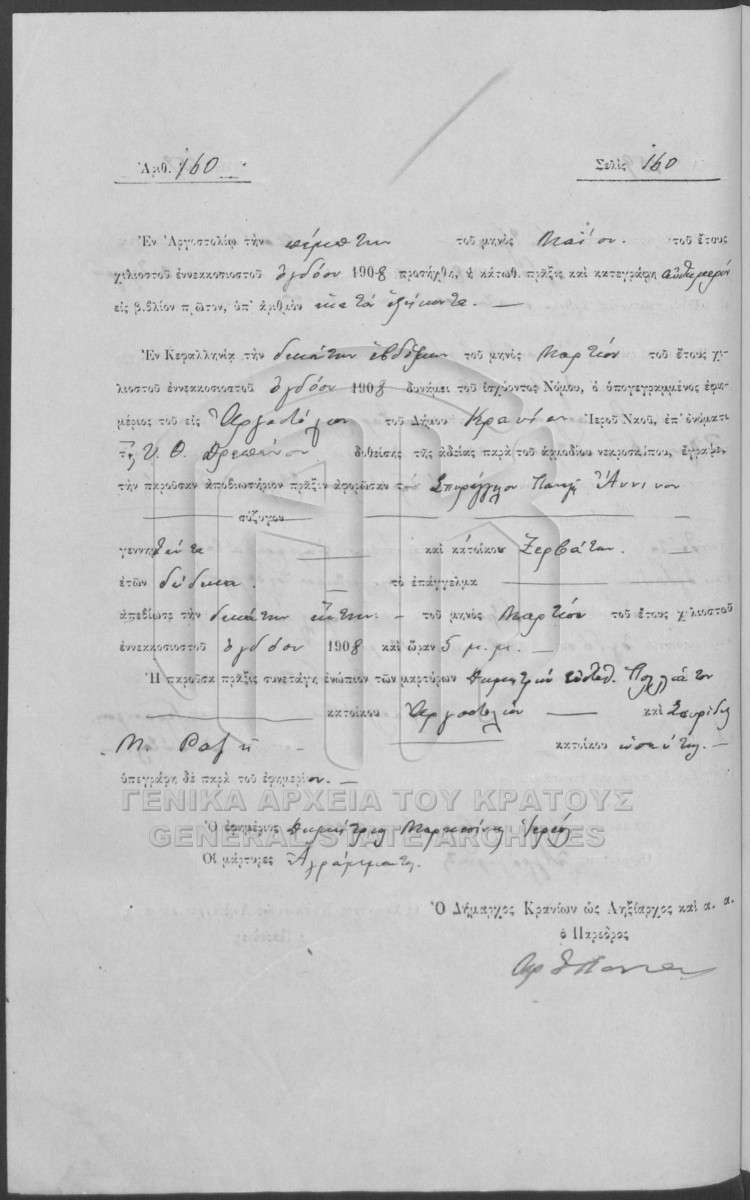 Ἀριθ. 160 Σελὶς 160
Ἐν Ἀργοστολίῳ τὴν πέμπτην τοῦ μηνὸς Μαΐου. τοῦ ἔτους
χιλιοστοῦ ἐννεακοσιοστοῦ ὀγδόου 1908 προσήχθη, ἡ κάτωθ. πρᾶξις καὶ κατεγράφη αὐθημερόν
εἰς βιβλίον πρῶτον, ὑπ' ἀριθμὸν ἑκατὸν ἑξήκοντα.
Ἐν Κεφαλληνίᾳ τὴν δεκάτην ἑβδόμην τοῦ μηνὸς Μαρτίου τοῦ ἔτους χι-
λιοστοῦ ἐννεακοσιοστοῦ ὀγδόου 1908 δυνάμει τοῦ ἰσχύοντος Νόμου, ὁ ὑπογεγραμμένος ἐφη-
μέριος τοῦ εἰς Ἀργοστόλιον τοῦ Δήμου Κρανίων Ἱεροῦ Ναοῦ, ἐπ' ὀνόματι
τῆς Υ. Θ. Δρεπάνου δοθείσης τῆς ἀδείας παρὰ τοῦ ἁρμοδίου νεκροσκόπου, ἔγραψε,
τὴν παροῦσαν ἀποβιωτήριον πρᾶξιν ἀφορῶσαν τὸν Σπυράγγελον Παναγῆ Ἄννινον
σύζυγον
γεννηθέντα καὶ κάτοικον Ζερβάτων.
ἐτῶν δώδεκα. τὸ ἐπάγγελμα
ἀπεβίωσε τὴν δεκάτην ἕκτην τοῦ μηνὸς Μαρτίου τοῦ ἔτους χιλιοστοῦ
ἐννεακοσιοστοῦ ὀγδόου 1908 καὶ ὥραν 5 μ.μ.
Ἡ παροῦσα πρᾶξις συνετάγη ἐνώπιον τῶν μαρτύρων Δημητρίου
κατοίκου Ἀργοστολίου καὶ Σπυρίδ.
Μ. κατοίκου ὡσαύτως.
ὑπεγράφη δὲ παρὰ τοῦ ἐφημερίου.
ΓΕΝΙΚΑ ΑΡΧΕΙΑ ΤΟΥ ΚΡΑΤΟΥΣ
GENERAL STATE ARCHIVES
Ὁ ἐφημέριος Δημήτριος Μαρκεσίνης Ἱερεύς
Οἱ μάρτυρες Ἀγράμματοι.
Ὁ Δήμαρχος Κρανίων ὡς Ληξίαρχος καὶ α. α.
ὁ Πάρεδρος